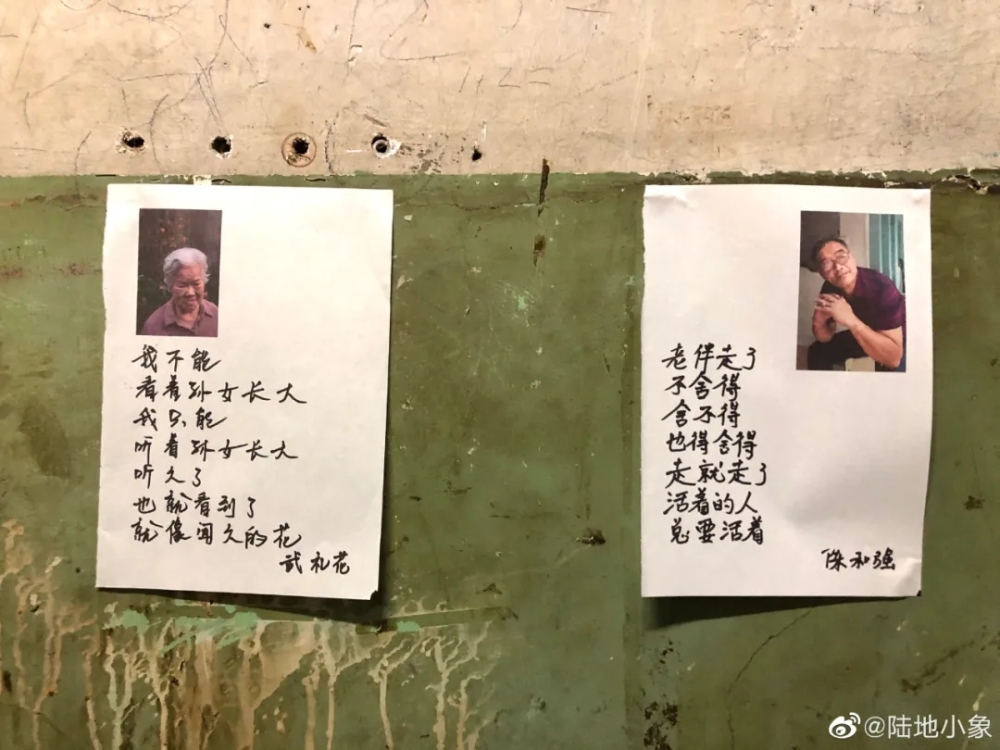 我不能
看着孙女长大
我只能
听着孙女长大
听久了
也就看到了
就像闻久的花
武礼花
老伴走了
不舍得
舍不得
也得舍得
走就走了
活着的人
总要活着
陈和强
@陆地小象